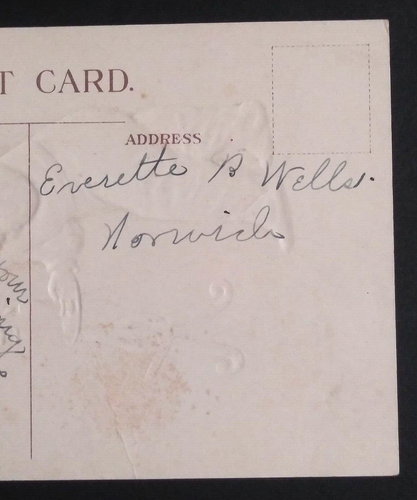 T CARD.
ADDRESS
Everette B Wells.
Norwich